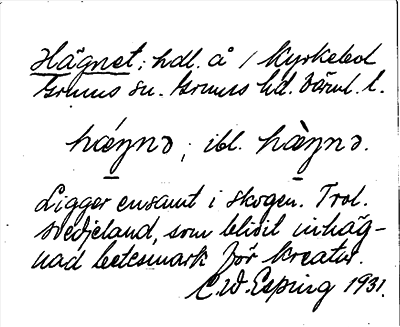 Hägnet; hdl. å / Kyrkebol
Grums sn. Grums hd. Värml. l.
hǽŋnə; ibl. hæ̀ŋnə.
Ligger ensamt i skogen. Trol.
svedjeland, som blivit inhäg-
nad betesmark för kreatur.
C.W. Esping 1931.